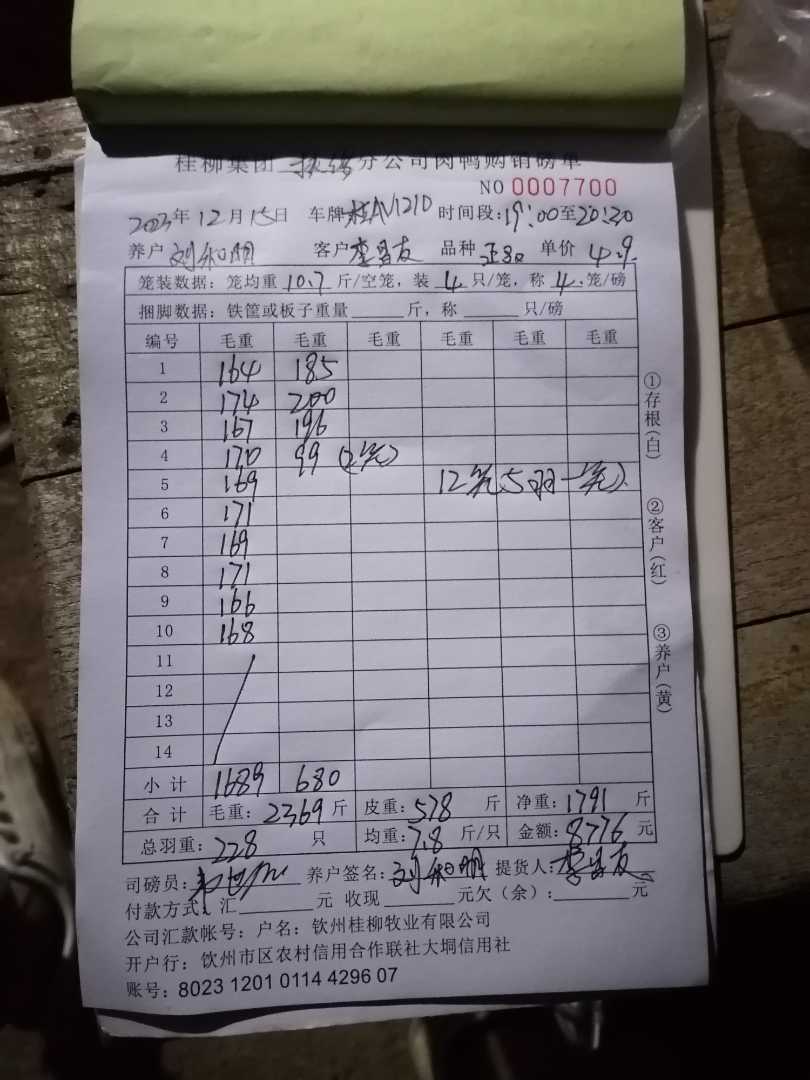 桂柳集团 分公司肉鸭购销磅单
NO 0007700
2023年12月15日 车牌桂AV1210 时间段:19:00至20:30
养户 刘和明 客户 李昌友 品种 单价 4.9
笼装数据：笼均重 10.7 斤/空笼，装 4 只/笼，称 4 笼/磅
捆脚数据：铁筐或板子重量 斤，称 只/磅
编号 毛重 毛重 毛重 毛重 毛重 毛重
1 164 185
2 174 200
3 167 196
4 170 99 (2笼)
5 169 12笼5羽一笼)
6 171
7 169
8 171
9 166
10 168
11
12
13
14
小计 1689 680
合计 毛重：2369 斤 皮重：578 斤 净重：1791 斤
总羽重：228 只 均重：7.8 斤/只 金额：8776 元
司磅员： 养户签名：刘和明 提货人：李昌友
付款方式：汇 元 收现 元欠（余）： 元
公司汇款帐号：户名：钦州桂柳牧业有限公司
开户行：钦州市区农村信用合作联社大垌信用社
账号：8023 1201 0114 4296 07
①存根(白)
②客户(红)
③养户(黄)